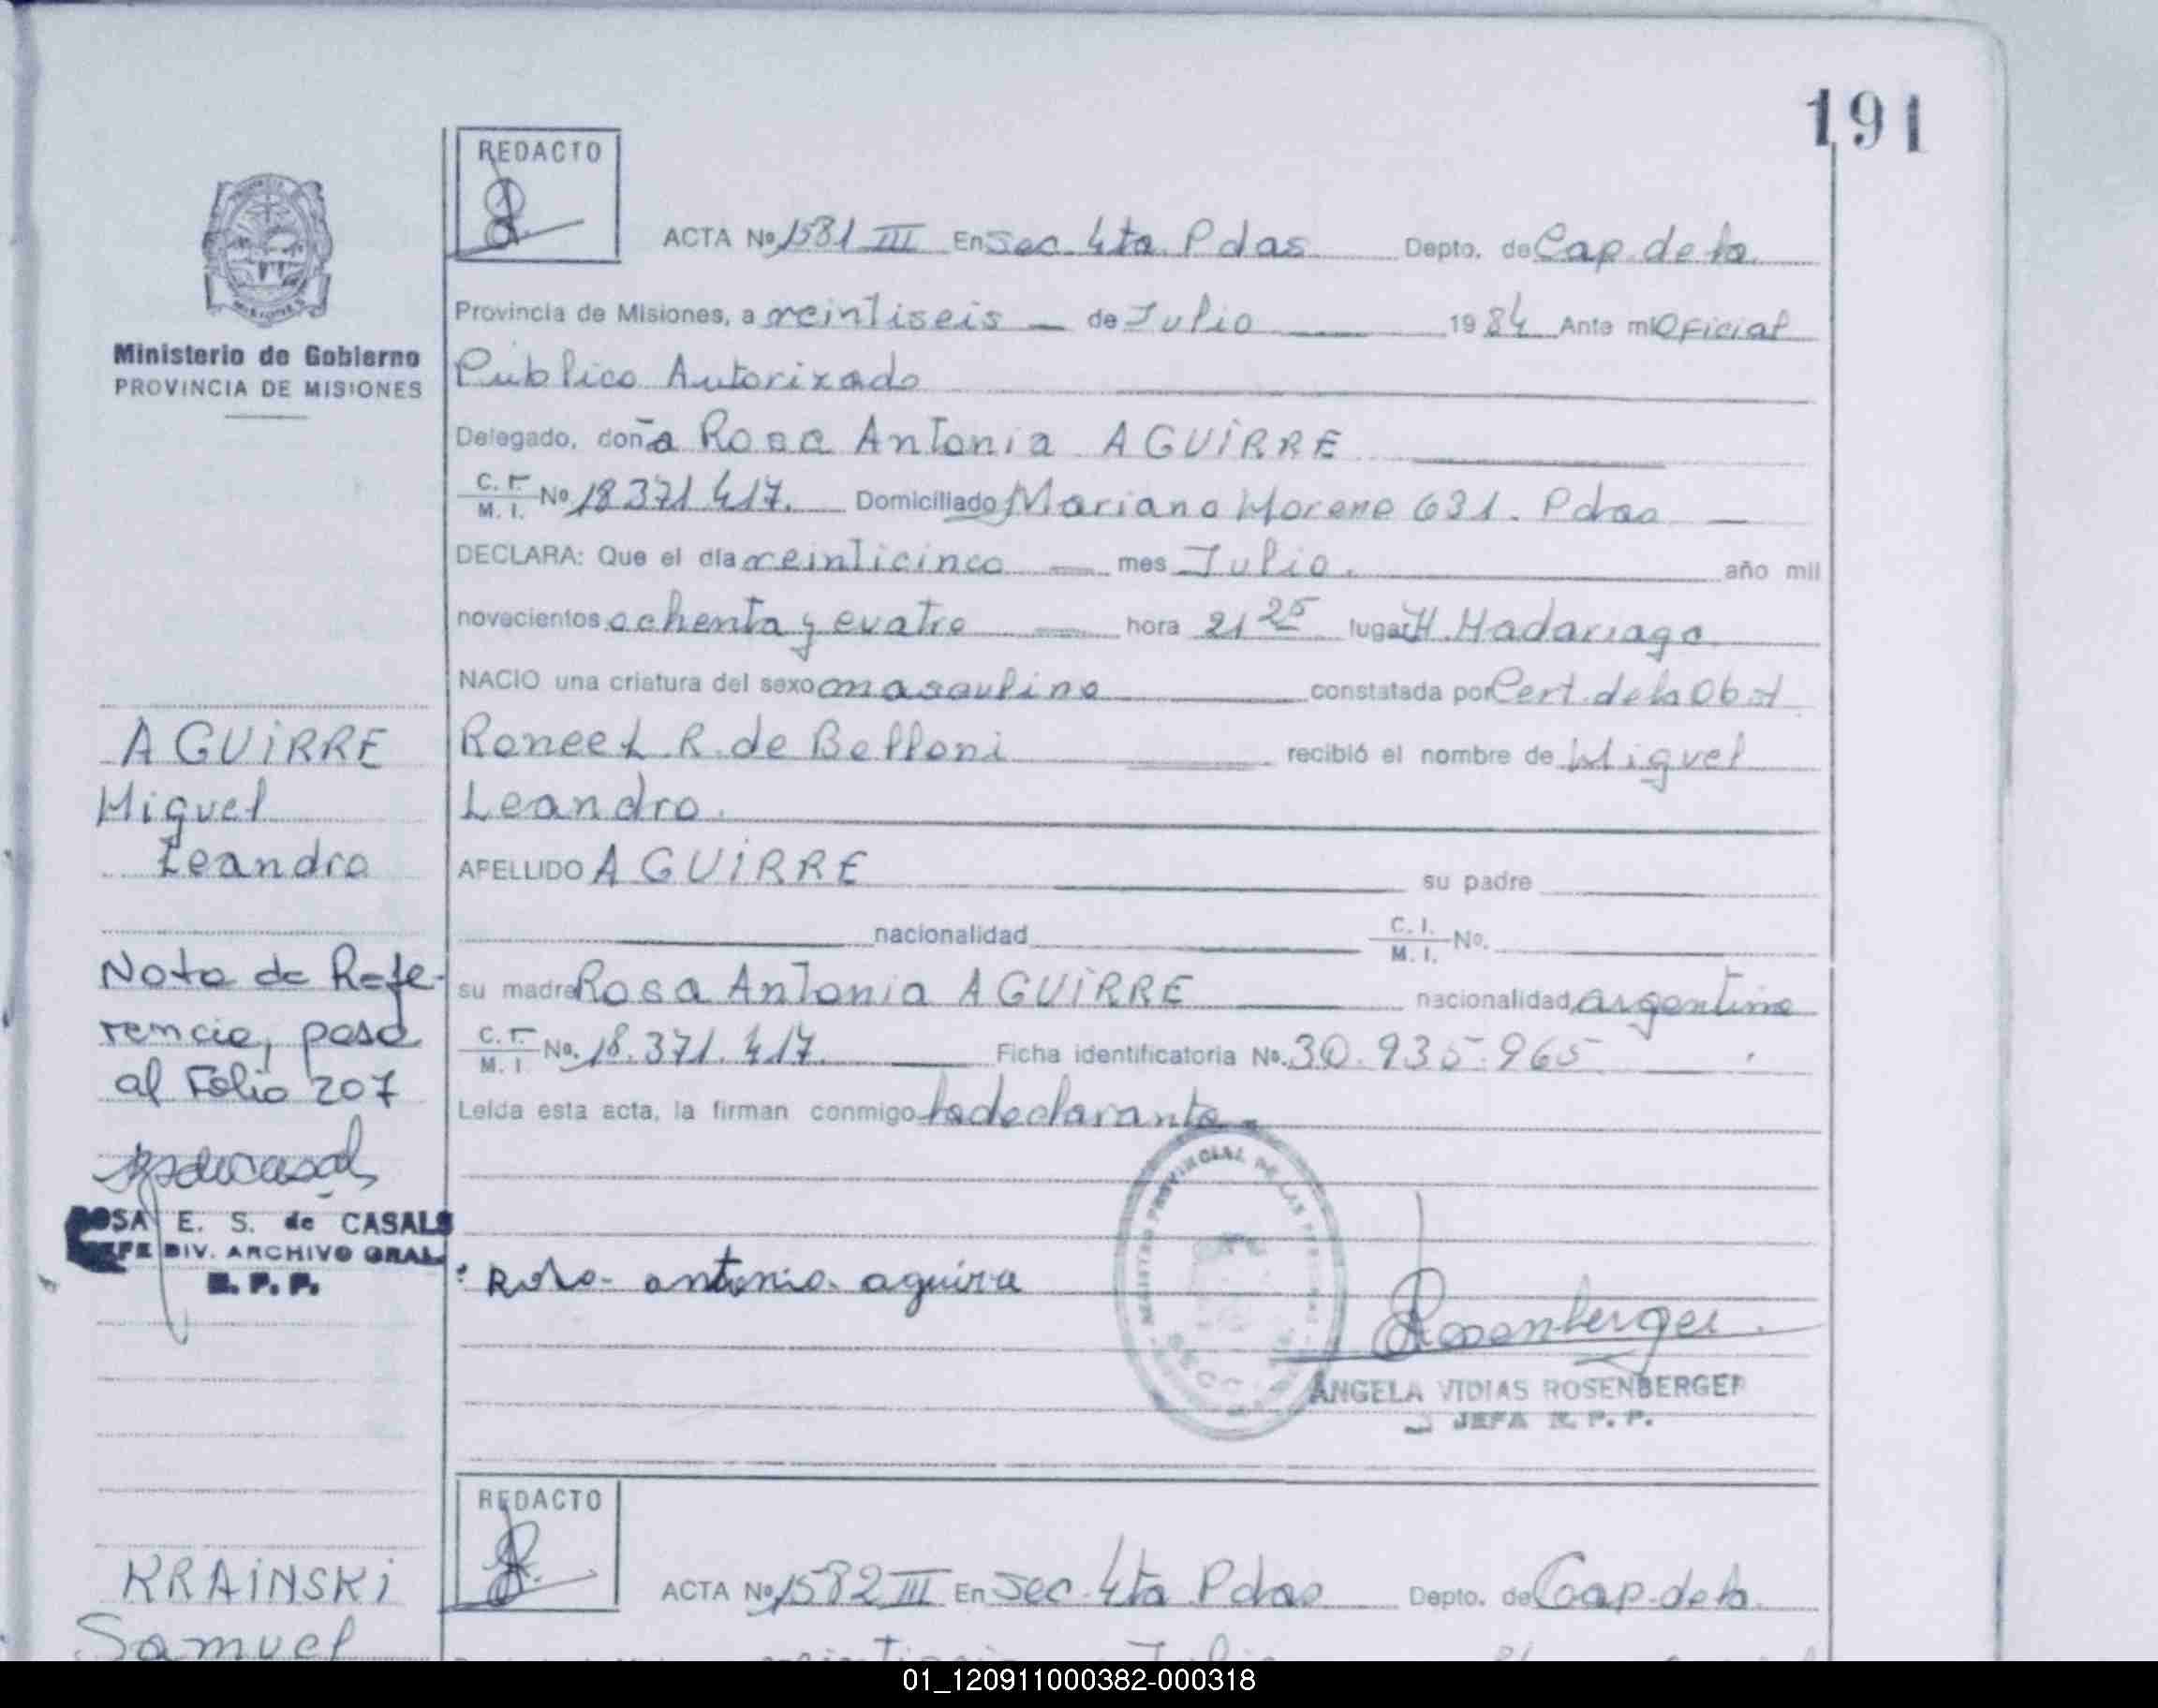 191
REDACTO
ACTA Nº 1581 III En Sec. 4ta. Pdas Depto. de Cap. de la
Provincia de Misiones, a veintiseis de Julio 1984 Ante mi Oficial
Público Autorizado
Delegado, doña Rosa Antonia AGUIRRE
C. I. M. I. Nº 18371.417. Domiciliado Mariano Moreno 631. Pdas
DECLARA: Que el día veinticinco mes Julio. año mil
novecientos ochenta y cuatro hora 21 25 lugar H. Madariaga
NACIO una criatura del sexo masculino constatada por Cert. de la Obst
Renee L. R. de Belloni recibió el nombre de Miguel
Leandro.
APELLIDO AGUIRRE su padre
nacionalidad C. I. M. I. No.
su madre Rosa Antonia AGUIRRE nacionalidad argentina
C. I. M. I. No. 18.371.417. Ficha identificatoria No. 30.935.965
Leída esta acta, la firman conmigo la declarante
Rosa antonia aguirre
Rosenberger
ANGELA VIDIAS ROSENBERGER
JEFA R. P. P.
Ministerio de Gobierno
PROVINCIA DE MISIONES
AGUIRRE
Miguel
Leandro
Nota de Refe-
rencia, pasa
al Folio 207
ROSA E. S. de CASALS
JEFE DIV. ARCHIVO GRAL.
R. P. P.
REDACTO
ACTA Nº 1582 III En Sec. 4ta Pdas Depto. de Cap. de la
KRAINSKI
Samuel
01_120911000382-000318